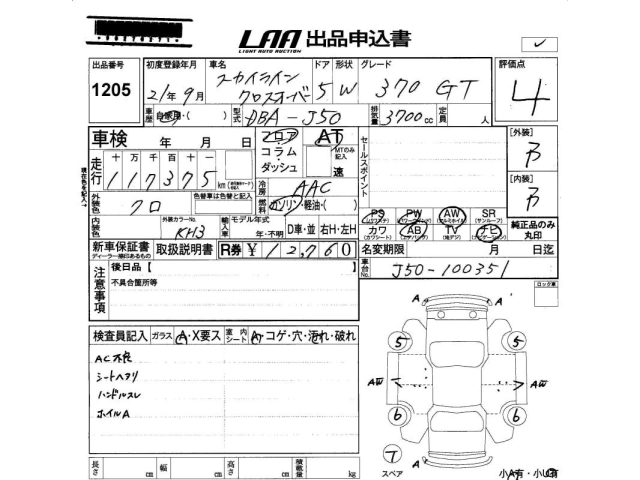 LAA 出品申込書
LIGHT AUTO AUCTION
出品番号 初度登録年月 車名 ドア 形状 グレード 評価点
1205 21年 9月 スカイライン クロスオーバー 5 W 370 GT 4
車歴 自家用・( ) 型式 DBA-J50 排気量 3700cc 定員 人
車検 年 月 日 フロア AT
コラム・ダッシュ MTのみ記入 速
セールスポイント
[外装]
[内装]
現在の距離を記入
走行 十 万 千 百 十
117375 km
冷房 AAC
外装色 クロ 色替車は色替と記入
燃料 ガソリン・軽油・( )
内装色 外装カラーNo. KH3
輸入車 モデル年式 年・不明 D車・並 右H・左H
PS PW AW SR (サンルーフ)
カワ (カワシート) AB TV ナビ
純正品のみ丸印
新車保証書 取扱説明書 R券 ¥12,760
名変期限 月 日迄
車台No. J50-100351
注意事項 後日品【
不具合箇所等
ロック車
検査員記入 ガラス A・X要ス 室内シート A・コゲ・穴・汚れ・破れ
AC不良
シートヘタリ
ハンドルスレ
ホイルA
A
5 5
AW AW
6 6
A
7
スペア
小A有・小U有
長さ cm 幅 cm 高さ cm 積載量 kg